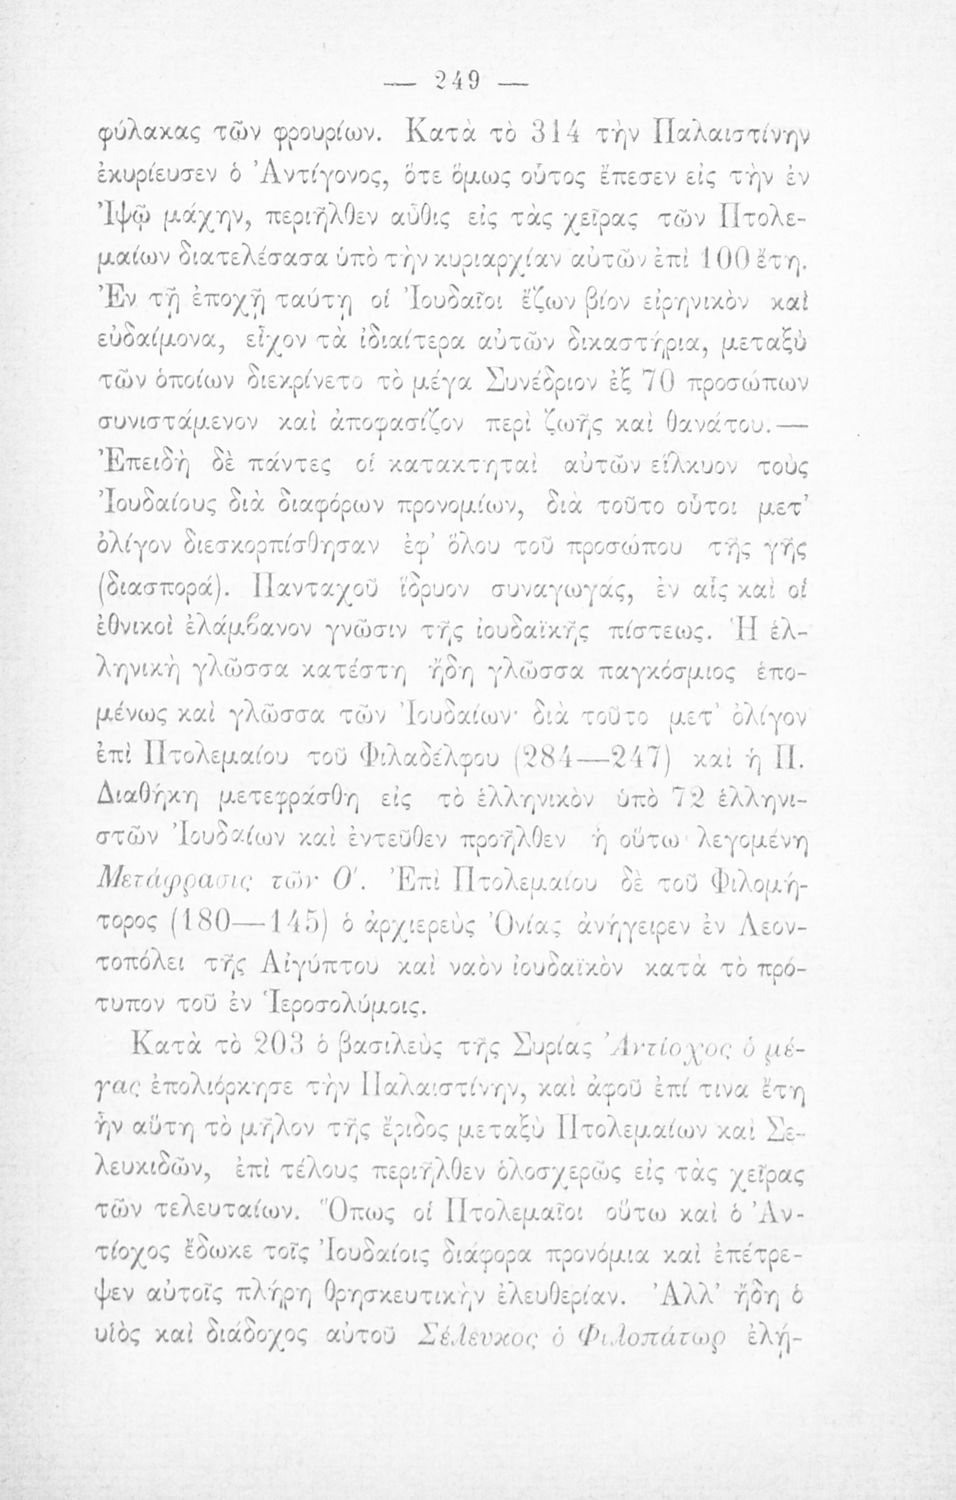 — 249 —
φύλακας τῶν φρουρίων. Κατὰ τὸ 314 τὴν Παλαιστίνην
ἐκυρίευσεν ὁ Ἀντίγονος, ὅτε ὅμως οὗτος ἔπεσεν εἰς τὴν ἐν
Ἰψῷ μάχην, περιῆλθεν αὖθις εἰς τὰς χεῖρας τῶν Πτολε-
μαίων διατελέσασα ὑπὸ τὴν κυριαρχίαν αὐτῶν ἐπὶ 100 ἔτη.
Ἐν τῇ ἐποχῇ ταύτῃ οἱ Ἰουδαῖοι ἔζων βίον εἰρηνικὸν καὶ
εὐδαίμονα, εἶχον τὰ ἰδιαίτερα αὐτῶν δικαστήρια, μεταξὺ
τῶν ὁποίων διεκρίνετο τὸ μέγα Συνέδριον ἐξ 70 προσώπων
συνιστάμενον καὶ ἀποφασίζον περὶ ζωῆς καὶ θανάτου.—
Ἐπειδὴ δὲ πάντες οἱ κατακτηταὶ αὐτῶν εἵλκυον τοὺς
Ἰουδαίους διὰ διαφόρων προνομίων, διὰ τοῦτο οὗτοι μετ’
ὀλίγον διεσκορπίσθησαν ἐφ’ ὅλου τοῦ προσώπου τῆς γῆς
(διασπορά). Πανταχοῦ ἵδρυον συναγωγάς, ἐν αἷς καὶ οἱ
ἐθνικοὶ ἐλάμβανον γνῶσιν τῆς ἰουδαϊκῆς πίστεως. Ἡ ἑλ-
ληνικὴ γλῶσσα κατέστη ἤδη γλῶσσα παγκόσμιος ἑπο-
μένως καὶ γλῶσσα τῶν Ἰουδαίων· διὰ τοῦτο μετ’ ὀλίγον
ἐπὶ Πτολεμαίου τοῦ Φιλαδέλφου (284—247) καὶ ἡ Π.
Διαθήκη μετεφράσθη εἰς τὸ ἑλληνικὸν ὑπὸ 72 ἑλληνι-
στῶν Ἰουδαίων καὶ ἐντεῦθεν προῆλθεν ἡ οὕτω λεγομένη
Μετάφρασις τῶν Ο΄. Ἐπὶ Πτολεμαίου δὲ τοῦ Φιλομή-
τορος (180—145) ὁ ἀρχιερεὺς Ὀνίας ἀνήγειρεν ἐν Λεον-
τοπόλει τῆς Αἰγύπτου καὶ ναὸν ἰουδαϊκὸν κατὰ τὸ πρό-
τυπον τοῦ ἐν Ἱεροσολύμοις.
Κατὰ τὸ 203 ὁ βασιλεὺς τῆς Συρίας Ἀντίοχος ὁ μέ-
γας ἐπολιόρκησε τὴν Παλαιστίνην, καὶ ἀφοῦ ἐπί τινα ἔτη
ἦν αὕτη τὸ μῆλον τῆς ἔριδος μεταξὺ Πτολεμαίων καὶ Σε-
λευκιδῶν, ἐπὶ τέλους περιῆλθεν ὁλοσχερῶς εἰς τὰς χεῖρας
τῶν τελευταίων. Ὅπως οἱ Πτολεμαῖοι οὕτω καὶ ὁ Ἀν-
τίοχος ἔδωκε τοῖς Ἰουδαίοις διάφορα προνόμια καὶ ἐπέτρε-
ψεν αὐτοῖς πλήρη θρησκευτικὴν ἐλευθερίαν. Ἀλλ’ ἤδη ὁ
υἱὸς καὶ διάδοχος αὐτοῦ Σέλευκος ὁ Φιλοπάτωρ ἐλή-